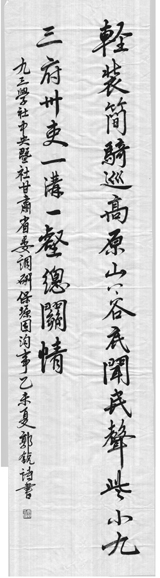 輕裝簡騎巡高原山〻谷底聞民聲些小九
三府州吏一溝一壑總關情
九三學社中央暨社甘肅省委調研保塬固沟事乙未夏郭銳詩書